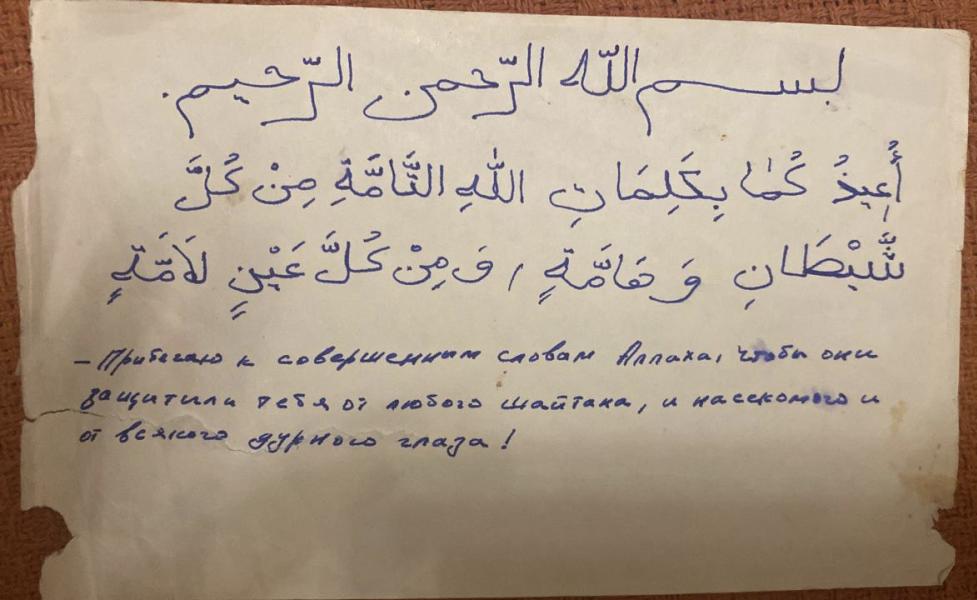 بسم الله الرّحمن الرّحيم.
أُعِيذُ كُمَا بِكَلِمَاتِ اللهِ التَّامَّةِ مِنْ كُلَّ
شَّيْطَانِ وَ هَامَّةٍ , وَ مِنْ كُلَّ عَيْنٍ لَامَّةٍ
– Прибегаю к совершенным словам Аллаха, чтобы они
защитили тебя от любого шайтана, и насекомого и
от всякого дурного глаза!